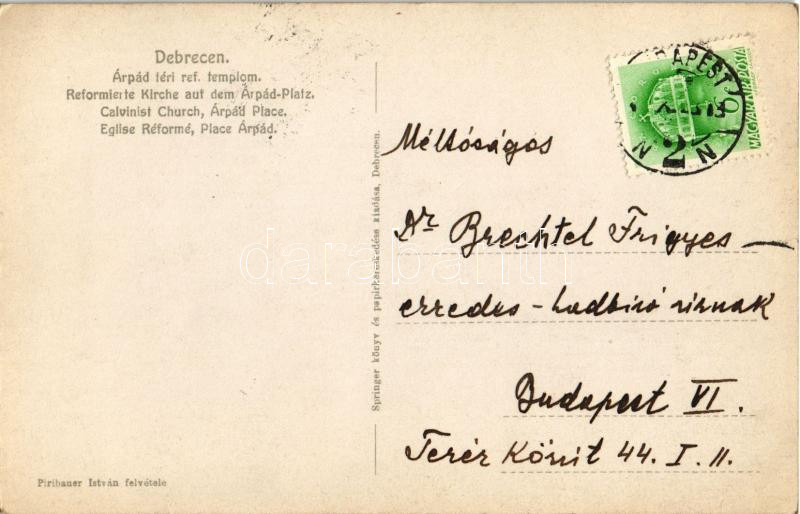 Debrecen.
Árpád téri ref. templom.
Reformierte Kirche auf dem Árpád-Platz.
Calvinist Church, Árpád Place.
Eglise Réformé, Place Árpád.
Springer könyv és papirkereskedése kiadása, Debrecen.
Piribauer István felvétele
BUDAPEST
2
MAGYAR KIR. POSTA
Méltóságos
Dr Brechtel Frigyes
ezredes - hadbiró úrnak
Budapest VI.
Teréz Körút 44. I. 11.
darabanth